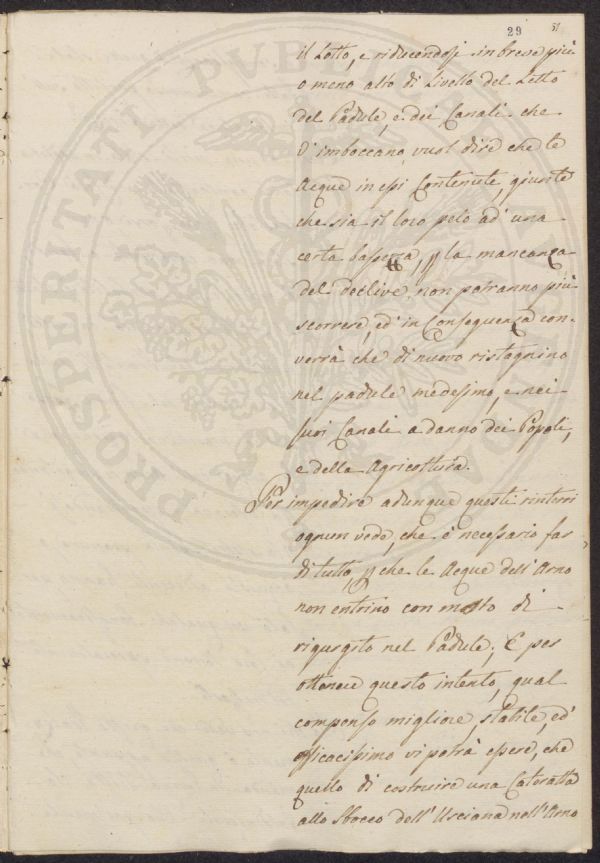 29 51
il Letto, e riducendosi in breve più
o meno alto di Livello del Letto
del Padule, e dei Canali che
v'imboccano, vuol dire che le
Acque in essi Contenute, giunte
che sia il loro pelo ad una
certa bassezza, p la mancanza
del declive, non potranno più
scorrere, ed in Conseguenza con-
verrà che di nuovo ristagnino
nel padule medesimo, e nei
suoi Canali a danno dei Popoli,
e della Agricoltura.
Per impedire adunque questi rinterri
ognun vede, che è necessario far
di tutto, p che le Acque dell'Arno
non entrino con moto di
rigurgito nel Padule; E per
ottenere questo intento, qual
compenso migliore, stabile, ed
efficacissimo vi potrà essere, che
quello di costruire una Cateratta
allo Sbocco dell'Usciana nell'Arno
PROSPERITATI PUBLICAE